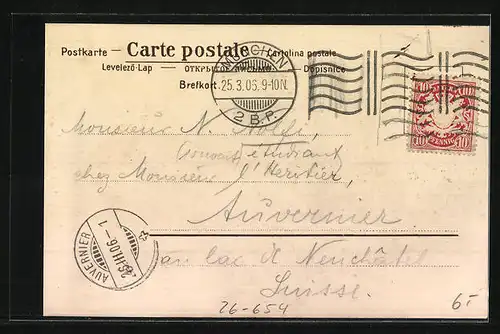 Postkarte – Carte postale – Cartolina postale
Levelező-Lap — ОТКРЫТОЕ ПИСЬМО — Dopisnice
Brefkort
MÜNCHEN
25.3.06. 9-10N.
2 B.P.
10 PFENNIG 10
Monsieur N.
étudiant
chez Monsieur l'Heritier,
Auvernier
au lac de Neuchâtel
Suisse.
AUVERNIER
26.III.06-1
26-654
6.-